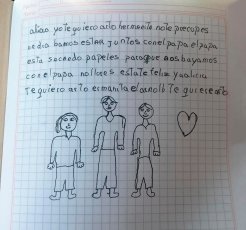 yo te quiero arto hermanita no te precopes
un dia bamos estar juntos con el papa el papa
esta sacando papeles para que nos bayamos
con el papa no llores estate felis y alicia
te quiero arto ermanita el te quiere arto